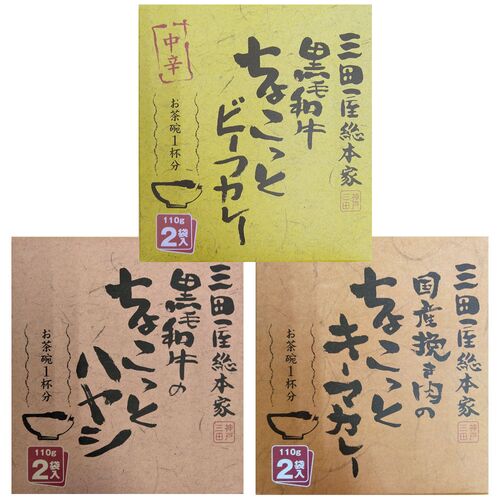 三田屋総本家
黒毛和牛
ちょこっと
ビーフカレー
中辛
お茶碗1杯分
110g
2袋入
神戸
三田
三田屋総本家
黒毛和牛の
ちょこっと
ハヤシ
お茶碗1杯分
110g
2袋入
神戸
三田
三田屋総本家
国産挽き肉の
ちょこっと
キーマカレー
お茶碗1杯分
110g
2袋入
神戸
三田